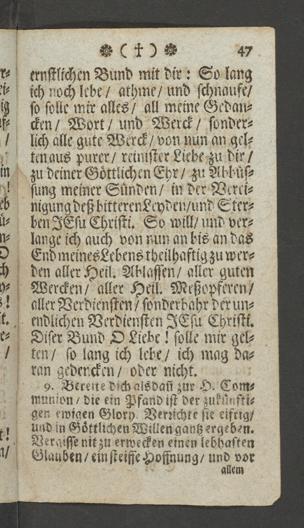 ❁ ( † ) ❁ 47
ernstlichen Bund mit dir : So lang
ich noch lebe / athme / und schnaufe /
so solle mir alles / all meine Gedan-
cken / Wort / und Werck / sonder-
lich alle gute Werck / von nun an gel-
ten aus purer / reinister Liebe zu dir /
zu deiner Göttlichen Ehr / zu Abbüs-
sung meiner Sünden / in der Verei-
nigung deß bitteren Leyden / und Ster-
ben JEsu Christi. So will / und ver-
lange ich auch von nun an bis an das
End meines Lebens theilhaftig zu wer-
den aller Heil. Ablassen / aller guten
Wercken / aller Heil. Meßopferen /
aller Verdiensten / sonderbahr der un-
endlichen Verdiensten JEsu Christi.
Diser Bund O Liebe ! solle mir gel-
ten / so lang ich lebe / ich mag da-
ran gedercken / oder nicht.
9. Bereite dich alsdañ zur H. Com-
munion / die ein Pfand ist der zukünfti-
gen ewigen Glory. Verrichte sie eifrig /
und in Göttlichen Willen gantz ergeben.
Vergisse nit zu erwecken einen lebhaften
Glauben / ein steiffe Hoffnung / und vor
allem